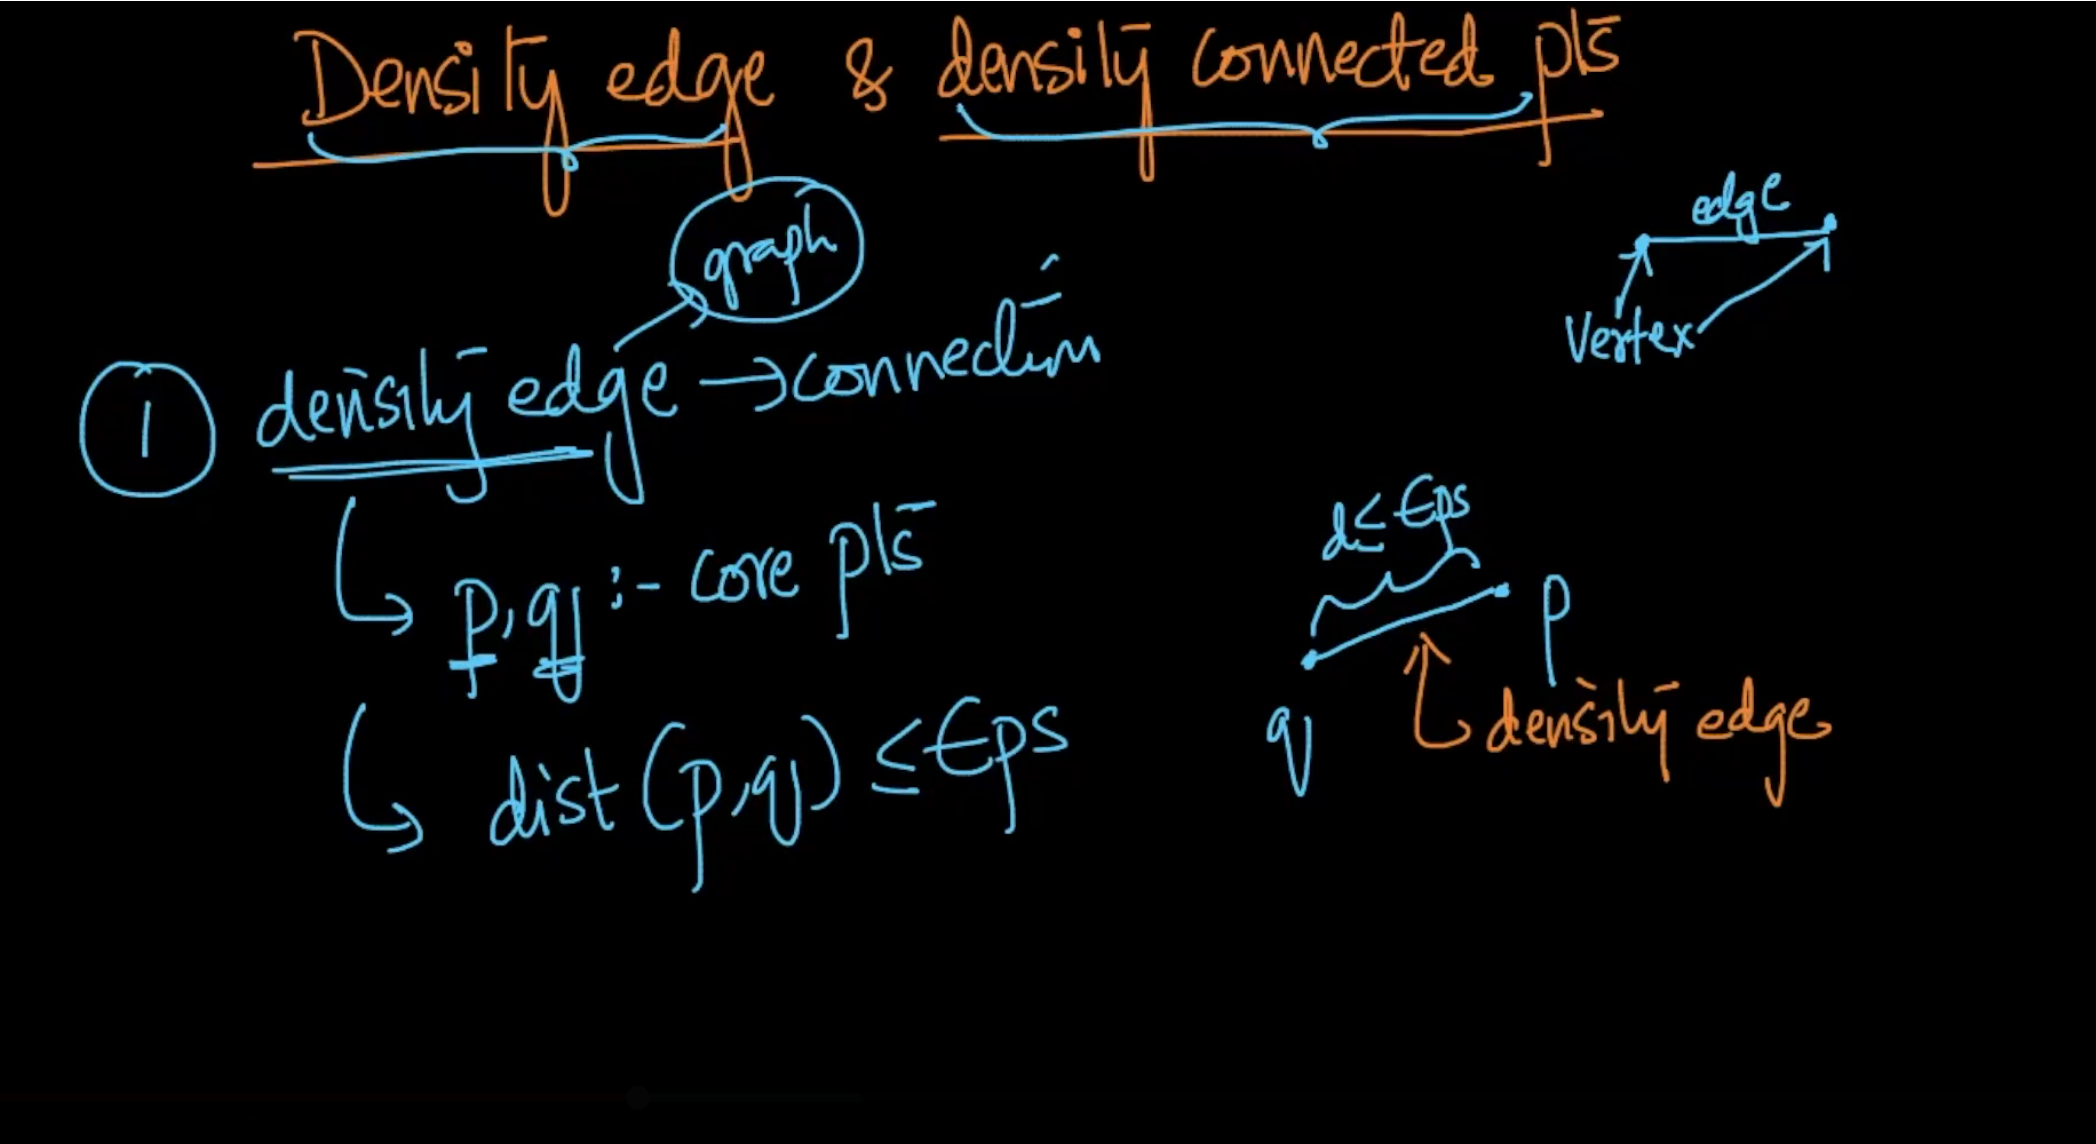 Density edge & density connected pts
graph
edge
Vertex
1 density edge → connection
p, q :- core pts
dist (p,q) ≤ Eps
d ≤ Eps
p
q
density edge